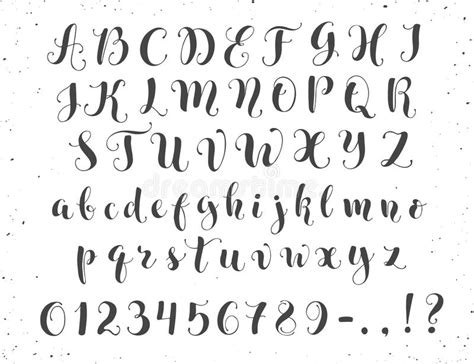 A B C D E F G H I
J K L M N O P Q R
S T U V W X Y Z
a b c d e f g h i j k l m n o
p q r s t u v w x y z
0 1 2 3 4 5 6 7 8 9 - . , ! ?